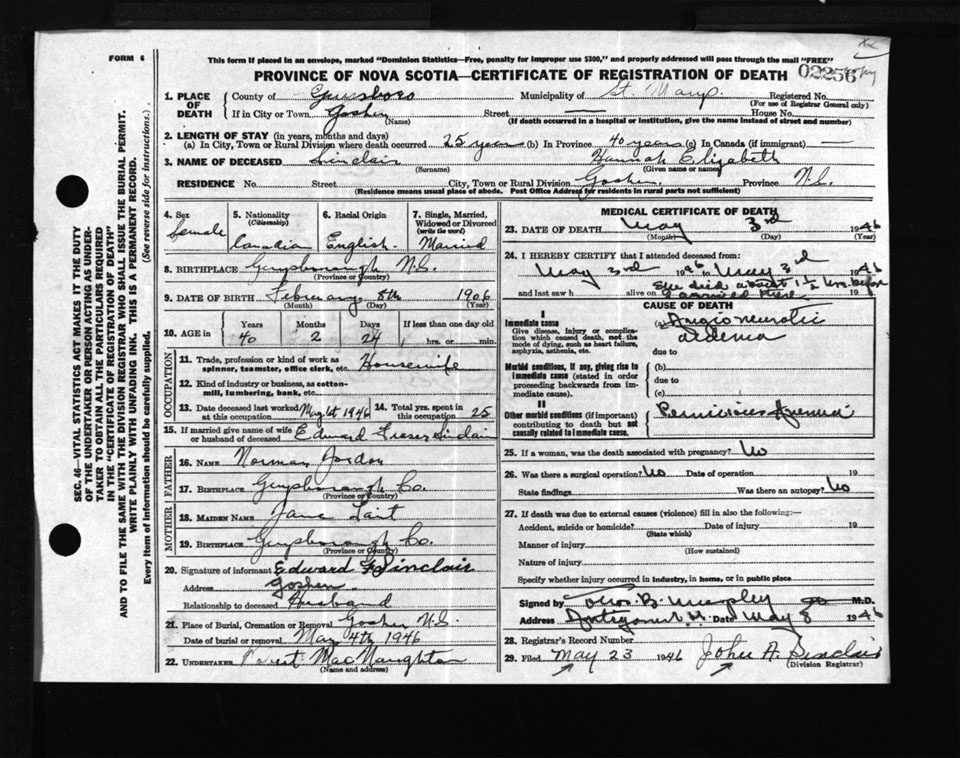 FORM 6
This form if placed in an envelope, marked "Dominion Statistics—Free, penalty for improper use $300," and properly addressed will pass through the mail "FREE"
PROVINCE OF NOVA SCOTIA—CERTIFICATE OF REGISTRATION OF DEATH 02256
1. PLACE OF DEATH { County of Guysboro Municipality of St. Marys Registered No.
(For use of Registrar General only)
If in City or Town Goshen Street — House No.
(Name) (If death occurred in a hospital or institution, give the name instead of street and number)
2. LENGTH OF STAY (in years, months and days)
(a) In City, Town or Rural Division where death occurred 25 years (b) In Province 40 years (c) In Canada (if immigrant) —
3. NAME OF DECEASED Sinclair Hannah Elizabeth
(Surname) (Given name or names)
RESIDENCE No. Street City, Town or Rural Division Goshen Province N.S.
(Residence means usual place of abode. Post Office Address for residents in rural parts not sufficient)
SEC. 46—VITAL STATISTICS ACT MAKES IT THE DUTY
OF THE UNDERTAKER OR PERSON ACTING AS UNDER-
TAKER TO OBTAIN ALL THE PARTICULARS REQUIRED
IN THE "CERTIFICATE OF REGISTRATION OF DEATH"
AND TO FILE THE SAME WITH THE DIVISION REGISTRAR WHO SHALL ISSUE THE BURIAL PERMIT.
WRITE PLAINLY WITH UNFADING INK. THIS IS A PERMANENT RECORD.
Every item of information should be carefully supplied. (See reverse side for instructions.)
4. Sex female
5. Nationality (Citizenship) Canadia
6. Racial Origin English.
7. Single, Married, Widowed or Divorced (write the word) Married
8. BIRTHPLACE Guysborough N.S.
(Province or Country)
9. DATE OF BIRTH February 8th 1906
(Month) (Day) (Year)
10. AGE in { Years 40 Months 2 Days 24 If less than one day old
hrs. or min.
OCCUPATION
11. Trade, profession or kind of work as spinner, teamster, office clerk, etc. Housewife
12. Kind of industry or business, as cotton-mill, lumbering, bank, etc.
13. Date deceased last worked at this occupation May 1st 1946 14. Total yrs. spent in this occupation 25
15. If married give name of wife or husband of deceased Edward Fraser Sinclair
FATHER
16. NAME Norman
17. BIRTHPLACE Guysborough Co.
(Province or Country)
MOTHER
18. MAIDEN NAME Jane
19. BIRTHPLACE Guysborough Co.
(Province or Country)
20. Signature of informant Edward F Sinclair
Address Goshen
Relationship to deceased Husband
21. Place of Burial, Cremation or Removal Goshen N.S.
Date of burial or removal May 4th 1946
22. UNDERTAKER MacNaughton
(Name and address)
MEDICAL CERTIFICATE OF DEATH
23. DATE OF DEATH May 3rd 1946
(Month) (Day) (Year)
24. I HEREBY CERTIFY that I attended deceased from:
May 3rd 1946 to May 3rd 1946
She died about 1 1/2 hrs. before
and last saw h alive on I arrived there 19
CAUSE OF DEATH
I
Immediate cause
Give disease, injury or complication which caused death, not the mode of dying, such as heart failure, asphyxia, asthenia, etc.
(a) Angio neurotic
oedema
due to
Morbid conditions, if any, giving rise to immediate cause (stated in order proceeding backwards from immediate cause).
(b)
due to
(c)
II
Other morbid conditions (if important) contributing to death but not causally related to immediate cause.
Pernicious Anemia
25. If a woman, was the death associated with pregnancy? No
26. Was there a surgical operation? No Date of operation 19
State findings Was there an autopsy? No
27. If death was due to external causes (violence) fill in also the following:—
Accident, suicide or homicide? Date of injury 19
(State which)
Manner of injury
(How sustained)
Nature of injury
Specify whether injury occurred in industry, in home, or in public place
Signed by B. Murphy M.D.
Address Antigonish Date May 8 1946
28. Registrar's Record Number
29. Filed May 23 1946 John A. Sinclair
(Division Registrar)